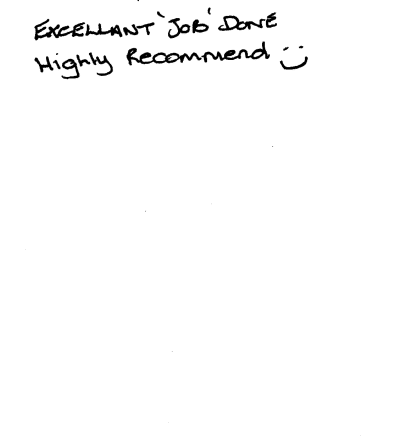 EXCELLANT 'JOB' DONE
Highly Recommend :)